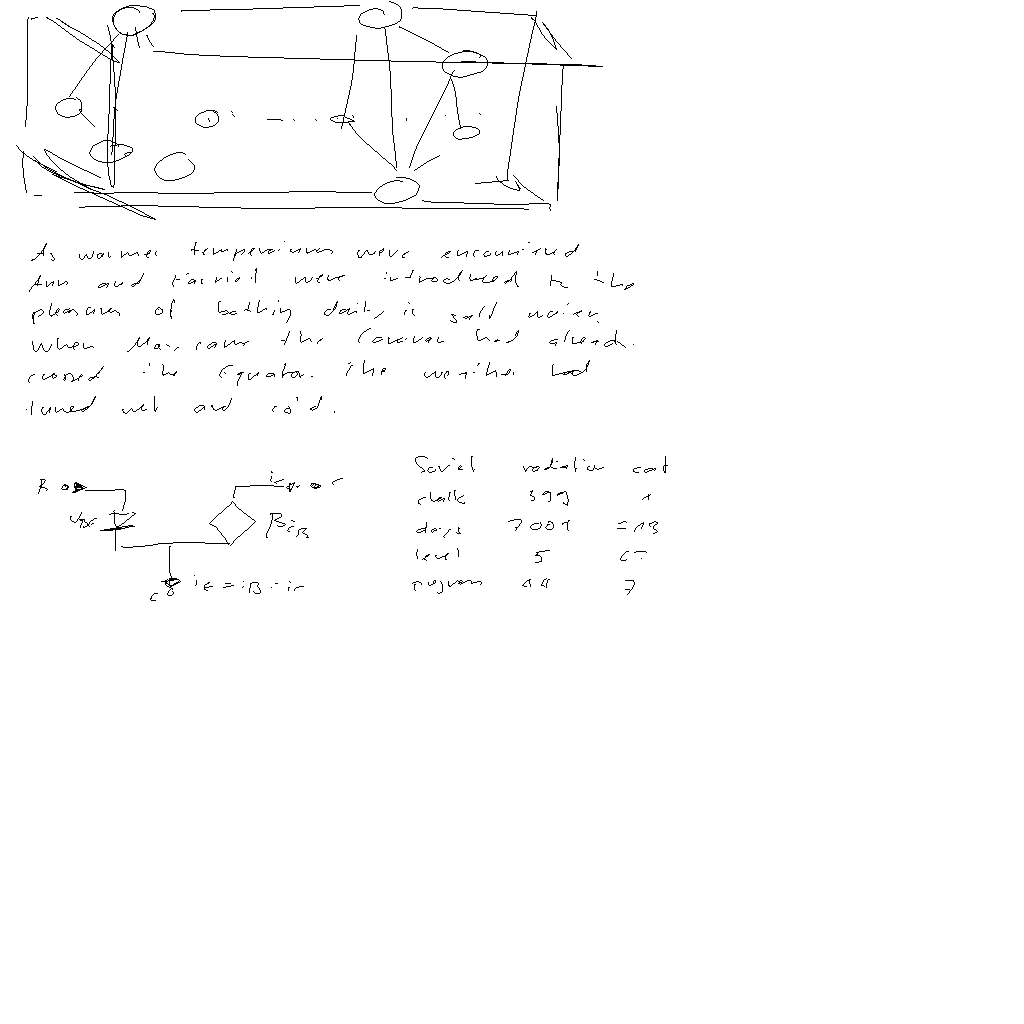 As warmer temperatures were encountered
Ann and Harriet were introduced to the
pleasures of bathing daily in salt water.
When May came the Caravan had already
crossed the Equator. The weather had
turned wet and cold.
B
ic
c
VBE
βiB
iE = iB + ic
Soviet radiation cost
chalk 399
days 7001 = 13
level 5
program 7